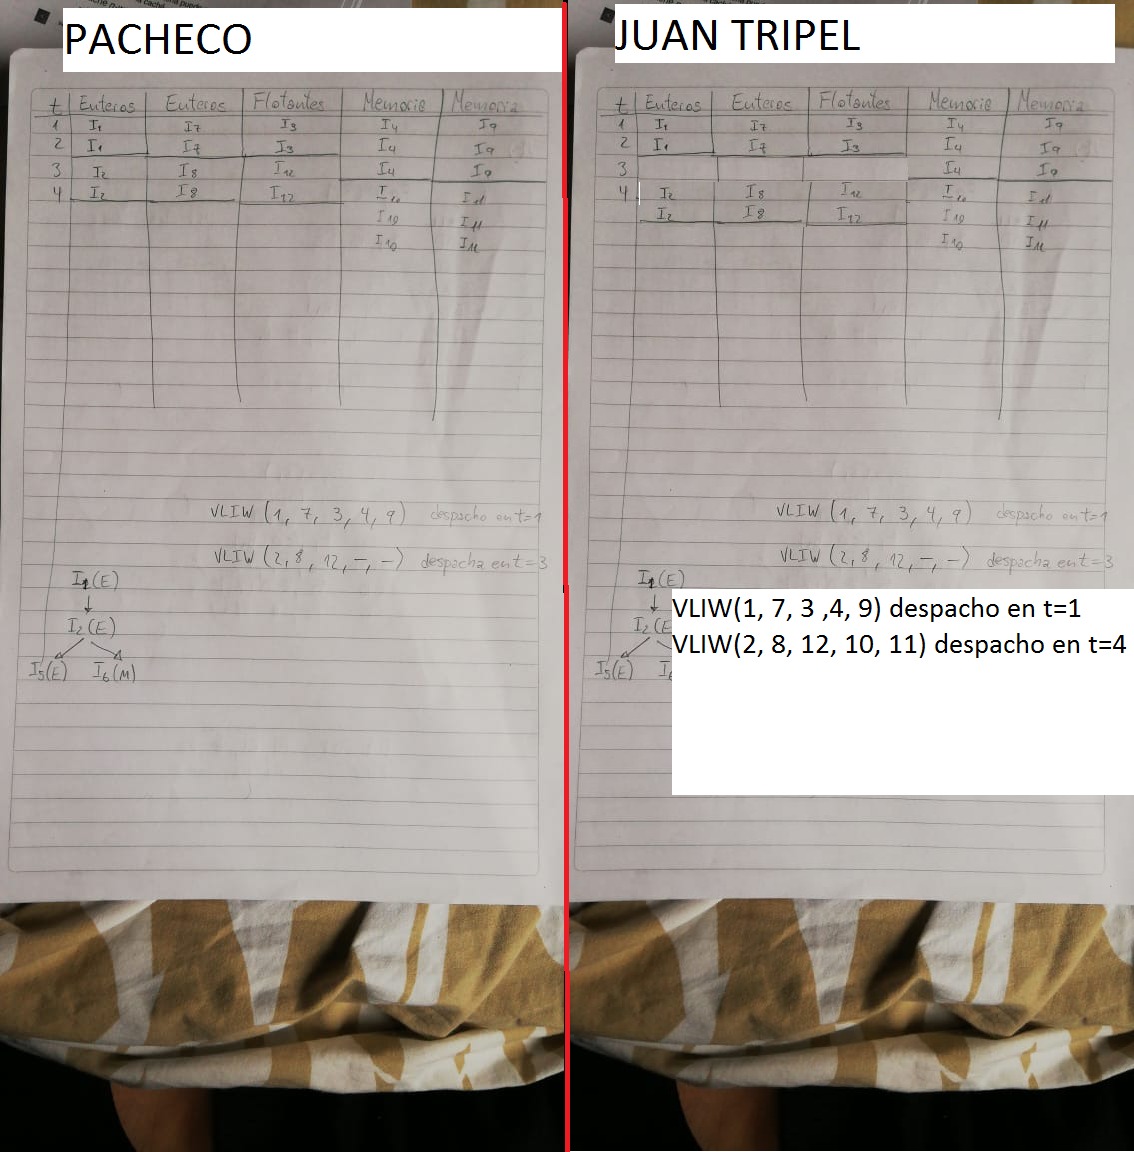 PACHECO
t Enteros Enteros Flotantes Memoria Memoria
1 I1 I7 I3 I4 I9
2 I1 I7 I3 I4 I9
3 I2 I8 I12 I4 I9
4 I2 I8 I12 I10 I11
I10 I11
I10 I11
VLIW (1, 7, 3, 4, 9) despacho en t=1
VLIW (2, 8, 12, —, —) despacha en t=3
I1(E)
I2(E)
I5(E) I6(M)
JUAN TRIPEL
t Enteros Enteros Flotantes Memoria Memoria
1 I1 I7 I3 I4 I9
2 I1 I7 I3 I4 I9
3 I4 I9
4 I2 I8 I12 I10 I11
I2 I8 I12 I10 I11
I10 I11
VLIW (1, 7, 3, 4, 9) despacho en t=1
VLIW (2, 8, 12, —, —) despacha en t=3
I1(E)
VLIW(1, 7, 3 ,4, 9) despacho en t=1
I2(E
VLIW(2, 8, 12, 10, 11) despacho en t=4
I5(E) I6